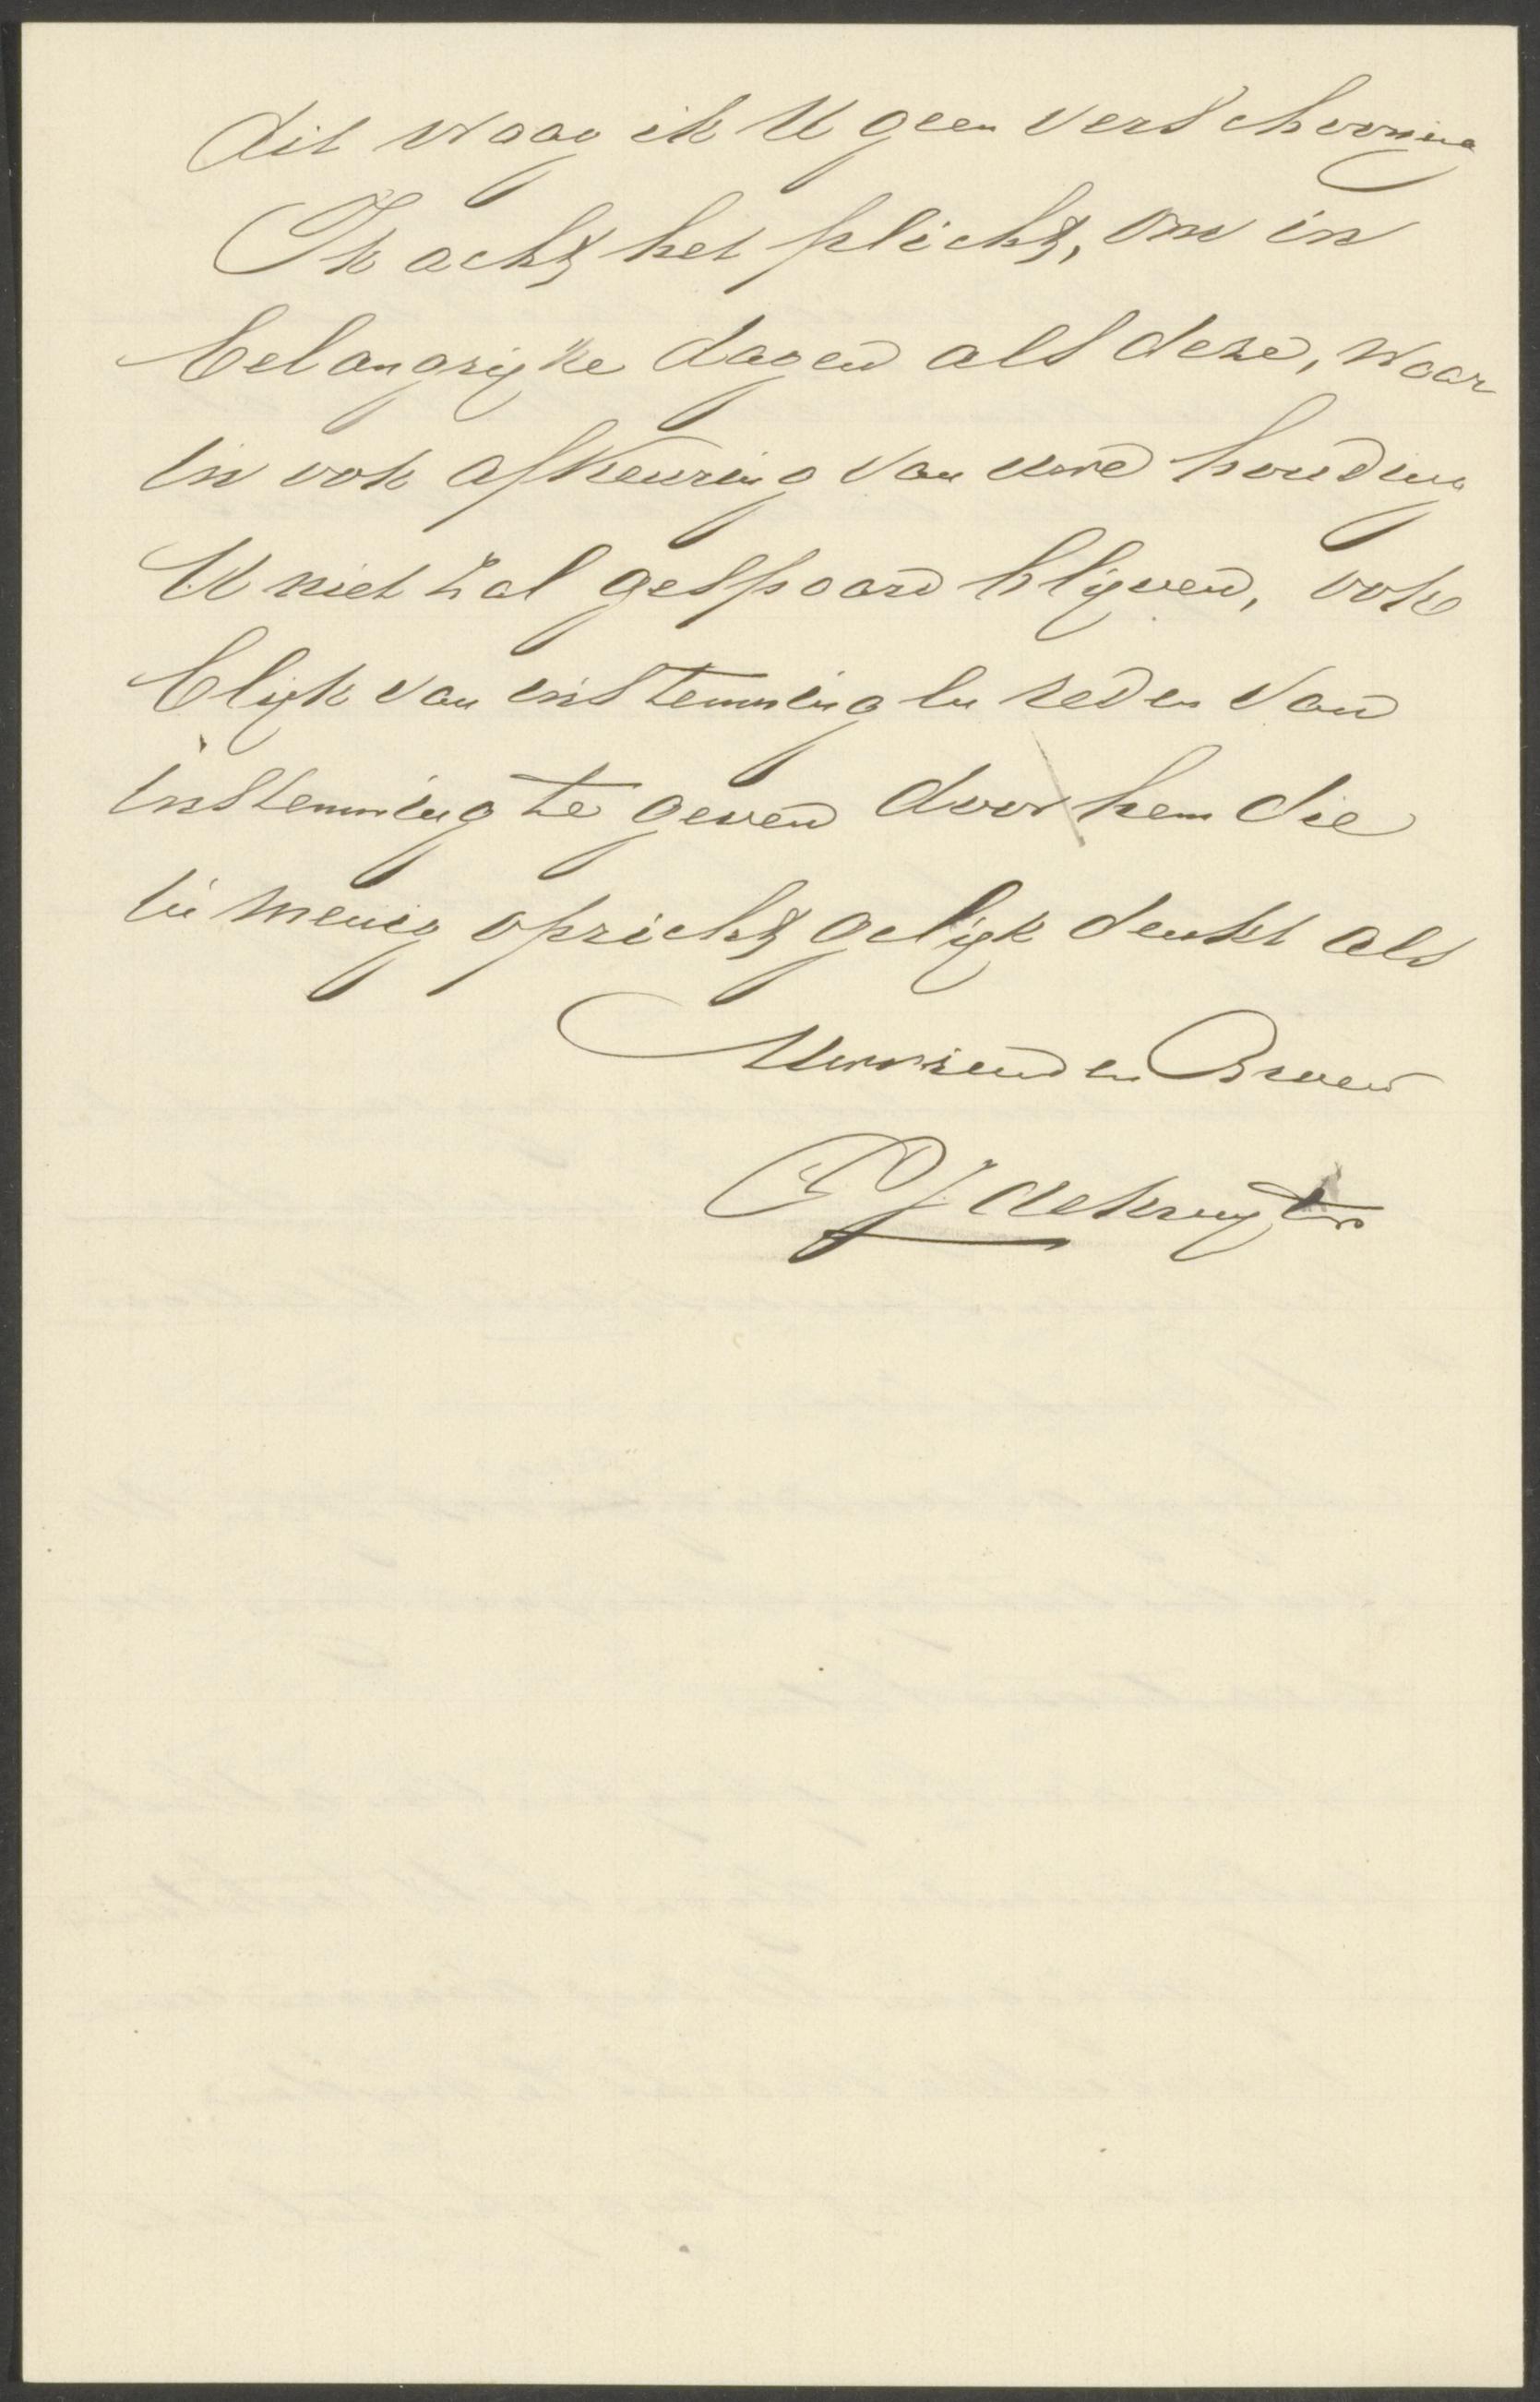 dit vraag ik U geen verschooning
Ik acht het plicht, om in
belangrijke dagen als deze, waar
in ook afkeuring van uwe houding
U niet zal gespaard blijven, ook
blijk van instemming en reden van
instemming te geven door hem die
in menig opzicht gelijk denkt als
Uw vriend en Broeder
P J de Kruyter